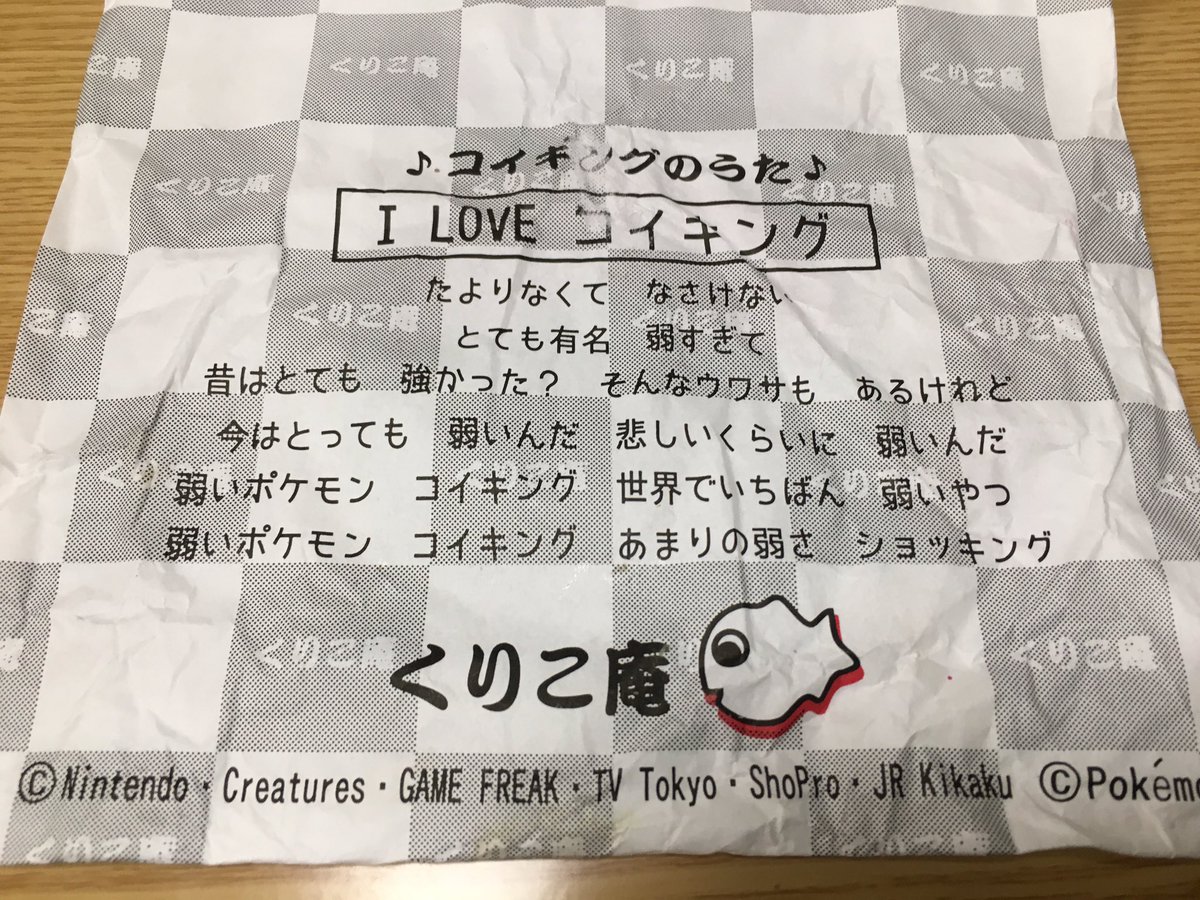 くりこ庵 くりこ庵 くりこ庵 くりこ庵
♪コイキングのうた♪
くりこ庵
I LOVE コイキング
たよりなくて なさけない
くりこ庵 くりこ庵
とても有名 弱すぎて
昔はとても 強かった? そんなウワサも あるけれど
今はとっても 弱いんだ 悲しいくらいに 弱いんだ
弱いポケモン コイキング 世界でいちばん 弱いやつ
弱いポケモン コイキング あまりの弱さ ショッキング
くりこ庵 くりこ庵
くりこ庵
©Nintendo・Creatures・GAME FREAK・TV Tokyo・ShoPro・JR Kikaku ©Pokémo